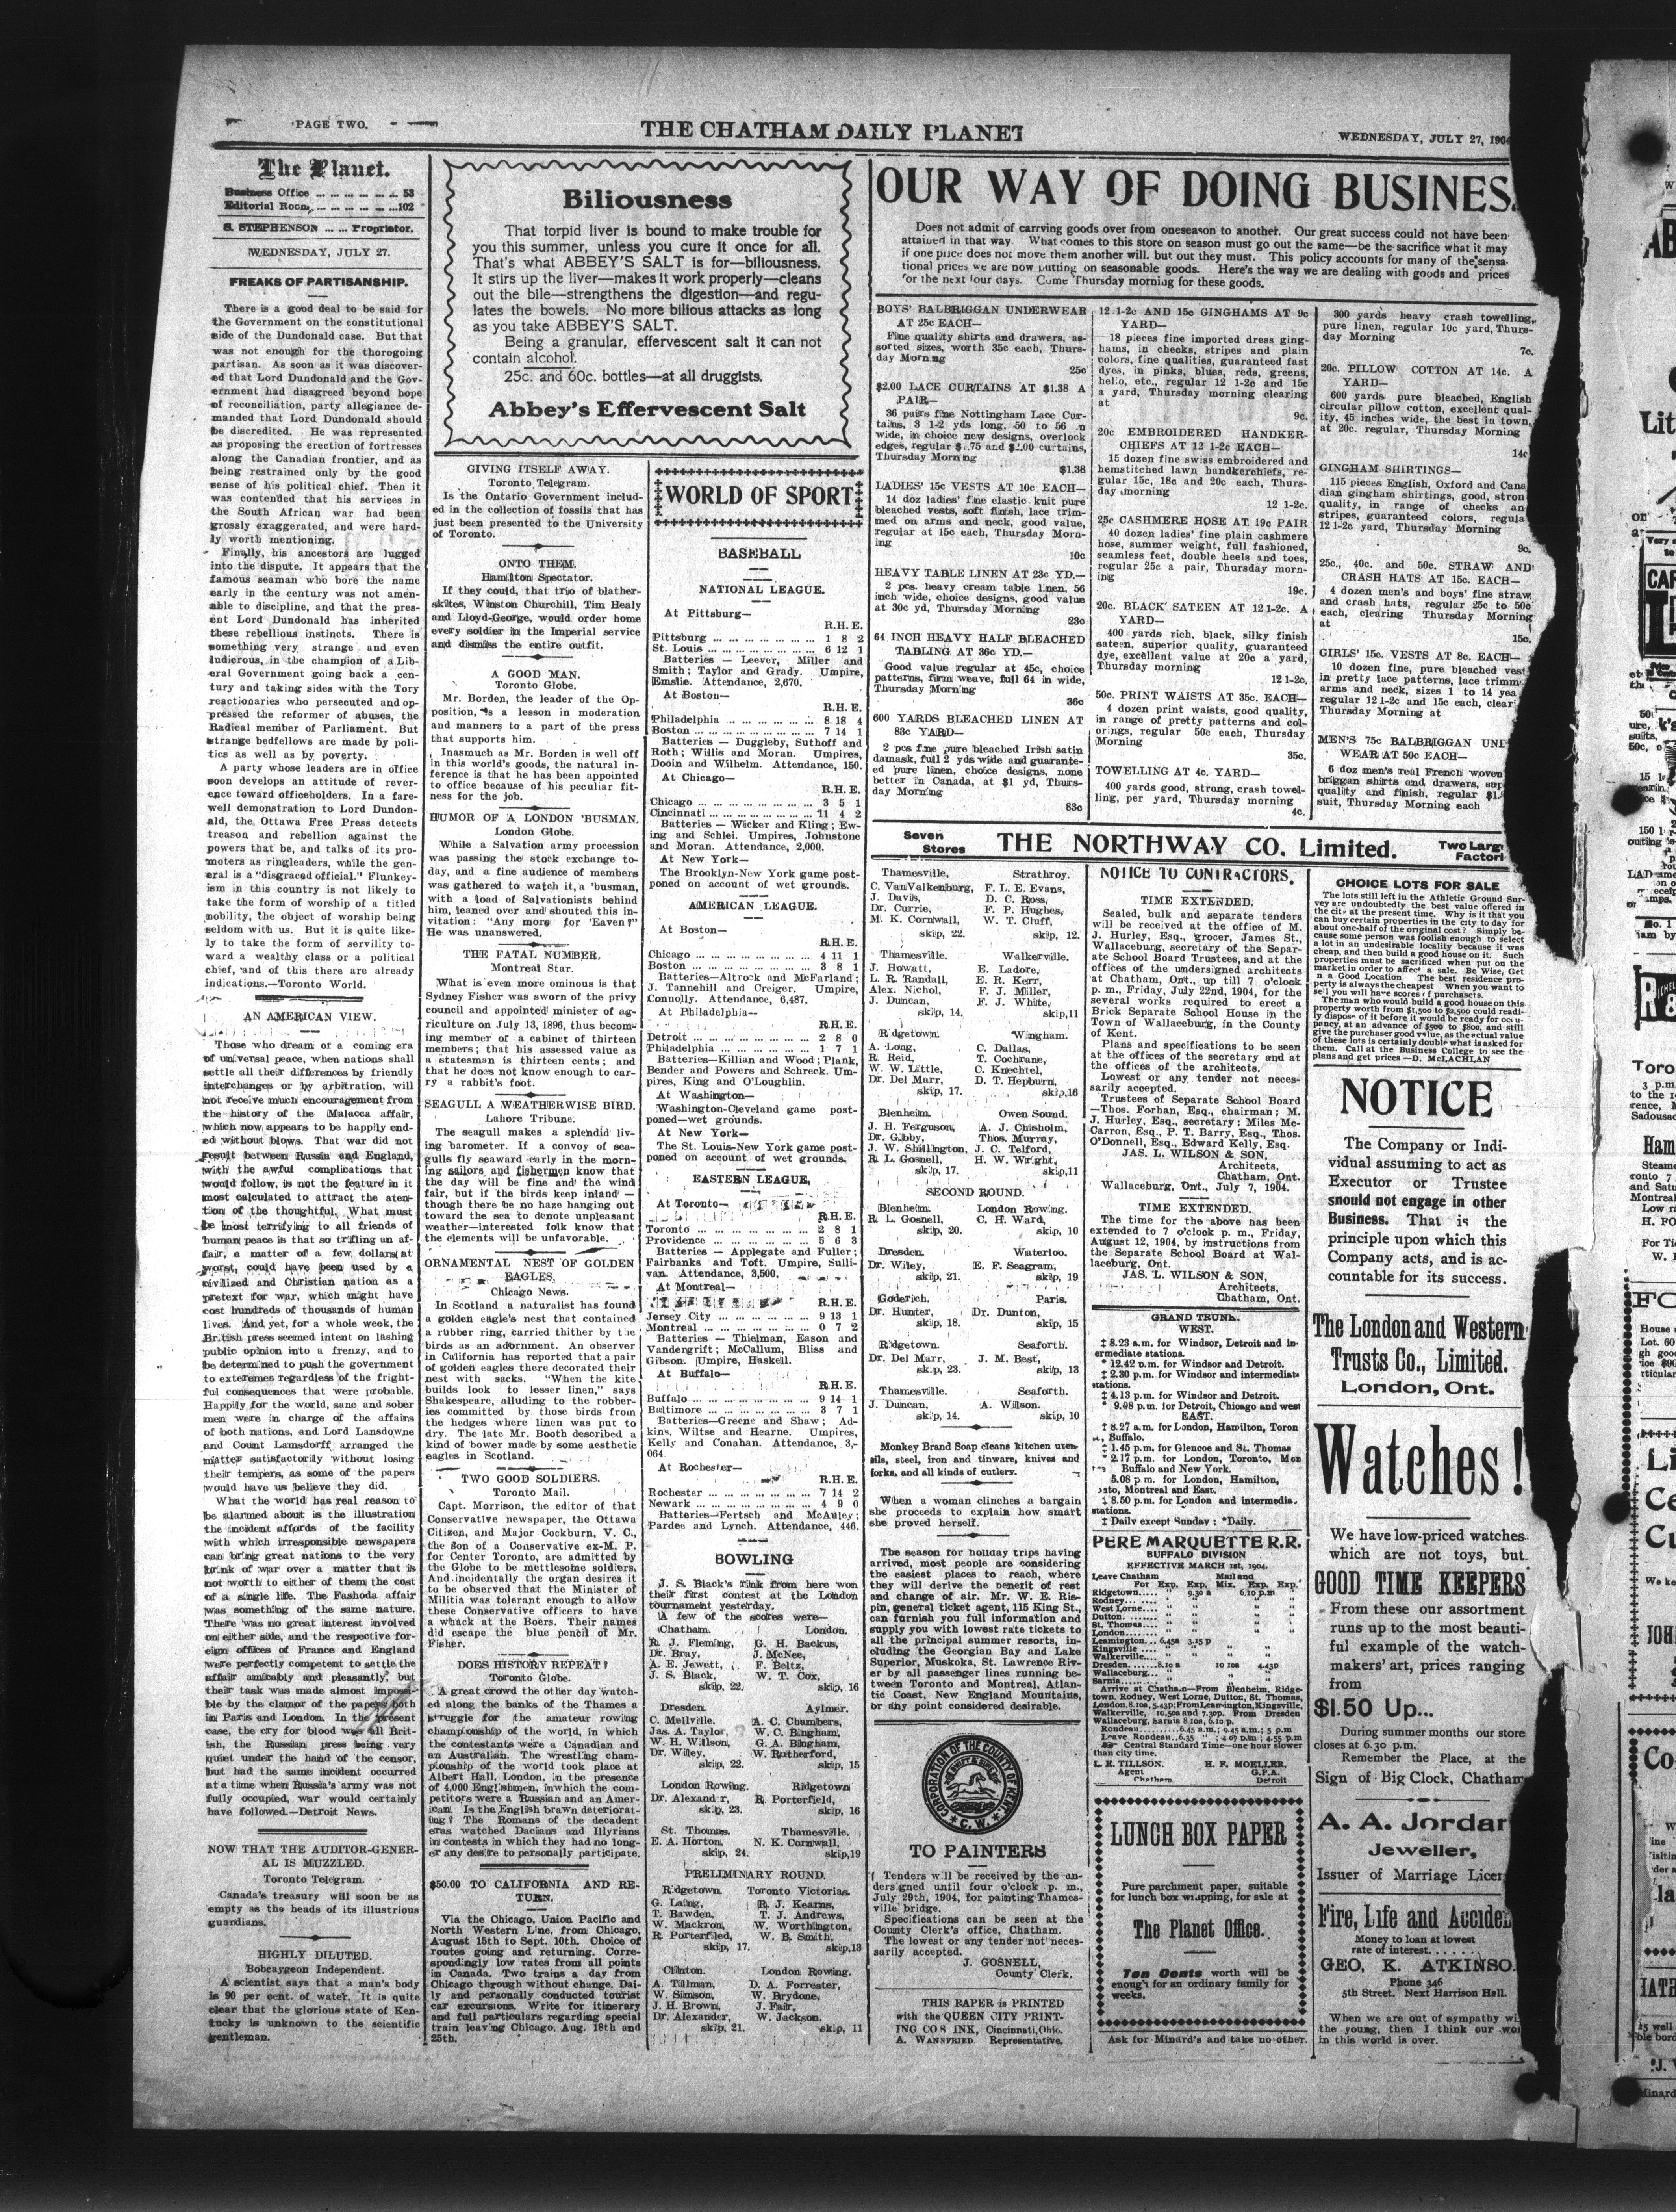 PAGE TWO.
THE CHATHAM DAILY PLANET
WEDNESDAY, JULY 27, 1904
The Planet.
Business Office ... ... ... ... ... .. 53
Editorial Room, ... ... ... ... ... ...102
S. STEPHENSON ... ... Proprietor.
WEDNESDAY, JULY 27.
FREAKS OF PARTISANSHIP.
There is a good deal to be said for
the Government on the constitutional
side of the Dundonald case. But that
was not enough for the thorogoing
partisan. As soon as it was discover-
ed that Lord Dundonald and the Gov-
ernment had disagreed beyond hope
of reconciliation, party allegiance de-
manded that Lord Dundonald should
be discredited. He was represented
as proposing the erection of fortresses
along the Canadian frontier, and as
being restrained only by the good
sense of his political chief. Then it
was contended that his services in
the South African war had been
grossly exaggerated, and were hard-
ly worth mentioning.
Finally, his ancestors are lugged
into the dispute. It appears that the
famous seaman who bore the name
early in the century was not amen-
able to discipline, and that the pres-
ent Lord Dundonald has inherited
these rebellious instincts. There is
something very strange and even
ludicrous, in the champion of a Lib-
eral Government going back a cen-
tury and taking sides with the Tory
reactionaries who persecuted and op-
pressed the reformer of abuses, the
Radical member of Parliament. But
strange bedfellows are made by poli-
tics as well as by poverty.
A party whose leaders are in office
soon develops an attitude of rever-
ence toward officeholders. In a fare-
well demonstration to Lord Dundon-
ald, the Ottawa Free Press detects
treason and rebellion against the
powers that be, and talks of its pro-
moters as ringleaders, while the gen-
eral is a "disgraced official." Flunkey-
ism in this country is not likely to
take the form of worship of a titled
nobility, the object of worship being
seldom with us. But it is quite like-
ly to take the form of servility to-
ward a wealthy class or a political
chief, and of this there are already
indications.—Toronto World.
AN AMERICAN VIEW.
Those who dream of a coming era
of universal peace, when nations shall
settle all their differences by friendly
interchanges or by arbitration, will
not receive much encouragement from
the history of the Malacca affair,
which now appears to be happily end-
ed without blows. That war did not
result between Russia and England,
with the awful complications that
would follow, is not the feature in it
most calculated to attract the aten-
tion of the thoughtful. What must
be most terrifying to all friends of
human peace is that so trifling an af-
fair, a matter of a few dollars at
worst, could have been used by a
civilized and Christian nation as a
pretext for war, which might have
cost hundreds of thousands of human
lives. And yet, for a whole week, the
British press seemed intent on lashing
public opinion into a frenzy, and to
be determined to push the government
to exteremes regardless of the fright-
ful consequences that were probable.
Happily for the world, sane and sober
men were in charge of the affairs
of both nations, and Lord Lansdowne
and Count Lamsdorff arranged the
matter satisfactorily without losing
their tempers, as some of the papers
would have us believe they did.
What the world has real reason to
be alarmed about is the illustration
the incident affords of the facility
with which irresponsible newspapers
can bring great nations to the very
brink of war over a matter that is
not worth to either of them the cost
of a single life. The Fashoda affair
was something of the same nature.
There was no great interest involved
on either side, and the respective for-
eign offices of France and England
were perfectly competent to settle the
affair amicably and pleasantly, but
their task was made almost impossi-
ble by the clamor of the papers both
in Paris and London. In the present
case, the cry for blood was all Brit-
ish, the Russian press being very
quiet under the hand of the censor,
but had the same incident occurred
at a time when Russia's army was not
fully occupied, war would certainly
have followed.—Detroit News.
NOW THAT THE AUDITOR-GENER-
AL IS MUZZLED.
Toronto Telegram.
Canada's treasury will soon be as
empty as the heads of its illustrious
guardians.
HIGHLY DILUTED.
Bobcaygeon Independent.
A scientist says that a man's body
is 90 per cent. of water. It is quite
clear that the glorious state of Ken-
tucky is unknown to the scientific
gentleman.
Biliousness
That torpid liver is bound to make trouble for
you this summer, unless you cure it once for all.
That's what ABBEY'S SALT is for—biliousness.
It stirs up the liver—makes it work properly—cleans
out the bile—strengthens the digestion—and regu-
lates the bowels. No more bilious attacks as long
as you take ABBEY'S SALT.
Being a granular, effervescent salt it can not
contain alcohol.
25c. and 60c. bottles—at all druggists.
Abbey's Effervescent Salt
GIVING ITSELF AWAY.
Toronto Telegram.
Is the Ontario Government includ-
ed in the collection of fossils that has
just been presented to the University
of Toronto.
ONTO THEM.
Hamilton Spectator.
If they could, that trio of blather-
skites, Winston Churchill, Tim Healy
and Lloyd-George, would order home
every soldier in the Imperial service
and dismiss the entire outfit.
A GOOD MAN.
Toronto Globe.
Mr. Borden, the leader of the Op-
position, is a lesson in moderation
and manners to a part of the press
that supports him.
Inasmuch as Mr. Borden is well off
in this world's goods, the natural in-
ference is that he has been appointed
to office because of his peculiar fit-
ness for the job.
HUMOR OF A LONDON 'BUSMAN.
London Globe.
While a Salvation army procession
was passing the stock exchange to-
day, and a fine audience of members
was gathered to watch it, a 'busman,
with a load of Salvationists behind
him, leaned over and shouted this in-
vitation: "Any more for 'Eaven?"
He was unanswered.
THE FATAL NUMBER.
Montreal Star.
What is even more ominous is that
Sydney Fisher was sworn of the privy
council and appointed minister of ag-
riculture on July 13, 1896, thus becom-
ing member of a cabinet of thirteen
members; that his assessed value as
a statesman is thirteen cents; and
that he does not know enough to car-
ry a rabbit's foot.
SEAGULL A WEATHERWISE BIRD.
Lahore Tribune.
The seagull makes a splendid liv-
ing barometer. If a convoy of sea-
gulls fly seaward early in the morn-
ing sailors and fishermen know that
the day will be fine and the wind
fair, but if the birds keep inland —
though there be no haze hanging out
toward the sea to denote unpleasant
weather—interested folk know that
the elements will be unfavorable.
ORNAMENTAL NEST OF GOLDEN
EAGLES.
Chicago News.
In Scotland a naturalist has found
a golden eagle's nest that contained
a rubber ring, carried thither by the
birds as an adornment. An observer
in California has reported that a pair
of golden eagles there decorated their
nest with sacks. "When the kite
builds look to lesser linen," says
Shakespeare, alluding to the robber-
ies committed by those birds from
the hedges where linen was put to
dry. The late Mr. Booth described a
kind of bower made by some aesthetic
eagles in Scotland.
TWO GOOD SOLDIERS.
Toronto Mail.
Capt. Morrison, the editor of that
Conservative newspaper, the Ottawa
Citizen, and Major Cockburn, V. C.,
the son of a Conservative ex-M. P.
for Center Toronto, are admitted by
the Globe to be mettlesome soldiers.
And incidentally the organ desires it
to be observed that the Minister of
Militia was tolerant enough to allow
these Conservative officers to have
a whack at the Boers. Their names
did escape the blue pencil of Mr.
Fisher.
DOES HISTORY REPEAT?
Toronto Globe.
A great crowd the other day watch-
ed along the banks of the Thames a
struggle for the amateur rowing
championship of the world, in which
the contestants were a Canadian and
an Australian. The wrestling cham-
pionship of the world took place at
Albert Hall, London, in the presence
of 4,000 Englishmen, in which the com-
petitors were a Russian and an Amer-
ican. Is the English brawn deteriorat-
ing? The Romans of the decadent
eras watched Dacians and Illyrians
in contests in which they had no long-
er any desire to personally participate.
$50.00 TO CALIFORNIA AND RE-
TURN.
Via the Chicago, Union Pacific and
North Western Line, from Chicago,
August 15th to Sept. 10th. Choice of
routes going and returning. Corre-
spondingly low rates from all points
in Canada. Two trains a day from
Chicago through without change. Dai-
ly and personally conducted tourist
car excursions. Write for itinerary
and full particulars regarding special
train leaving Chicago, Aug. 18th and
25th.
WORLD OF SPORT
BASEBALL
NATIONAL LEAGUE.
At Pittsburg—
R.H. E.
Pittsburg ... ... ... ... ... ... 1 8 2
St. Louis ... ... ... ... ... ... 6 12 1
Batteries — Leever, Miller and
Smith; Taylor and Grady. Umpire,
Emslie. Attendance, 2,670.
At Boston—
R.H. E.
Philadelphia ... ... ... ... ... 8 18 4
Boston ... ... ... ... ... ... 7 14 1
Batteries — Duggleby, Suthoff and
Roth; Willis and Moran. Umpires,
Dooin and Wilhelm. Attendance, 150.
At Chicago—
R.H. E.
Chicago ... ... ... ... ... ... 3 5 1
Cincinnati ... ... ... ... ... 11 4 2
Batteries — Wicker and Kling; Ew-
ing and Schlei. Umpires, Johnstone
and Moran. Attendance, 2,000.
At New York—
The Brooklyn-New York game post-
poned on account of wet grounds.
AMERICAN LEAGUE.
At Boston—
R.H. E.
Chicago ... ... ... ... ... ... 4 11 1
Boston ... ... ... ... ... ... 3 8 1
Batteries—Altrock and McFarland;
J. Tannehill and Creiger. Umpire,
Connolly. Attendance, 6,487.
At Philadelphia—
R.H. E.
Detroit ... ... ... ... ... ... 2 8 0
Philadelphia ... ... ... ... ... 1 7 1
Batteries—Killian and Wood; Plank,
Bender and Powers and Schreck. Um-
pires, King and O'Loughlin.
At Washington—
Washington-Cleveland game post-
poned—wet grounds.
At New York—
The St. Louis-New York game post-
poned on account of wet grounds.
EASTERN LEAGUE.
At Toronto—
R.H. E.
Toronto ... ... ... ... ... ... 2 8 1
Providence ... ... ... ... ... 5 6 3
Batteries — Applegate and Fuller;
Fairbanks and Toft. Umpire, Sulli-
van. Attendance, 3,500.
At Montreal—
R.H. E.
Jersey City ... ... ... ... ... 9 13 1
Montreal ... ... ... ... ... ... 0 7 2
Batteries — Thielman, Eason and
Vandergrift; McCallum, Bliss and
Gibson. Umpire, Haskell.
At Buffalo—
R.H. E.
Buffalo ... ... ... ... ... ... 9 14 1
Baltimore ... ... ... ... ... ... 3 7 1
Batteries—Greene and Shaw; Ad-
kins, Wiltse and Hearne. Umpires,
Kelly and Conahan. Attendance, 3,-
064.
At Rochester—
R.H. E.
Rochester ... ... ... ... ... 7 14 2
Newark ... ... ... ... ... ... 4 9 0
Batteries—Fertsch and McAuley;
Pardee and Lynch. Attendance, 446.
BOWLING
J. S. Black's rink from here won
their first contest at the London
tournament yesterday.
A few of the scores were—
Chatham. London.
R. J. Fleming, G. H. Backus,
Dr. Bray, J. McNee,
A. E. Jewett, F. Beltz,
J. S. Black, W. T. Cox,
skip, 22. skip, 16
Dresden. Aylmer.
C. Melville. A. C. Chambers,
Jas. A. Taylor, W. C. Bingham,
W. H. Wilson, G. A. Bingham,
Dr. Wiley, W. Rutherford,
skip, 22. skip, 15
London Rowing. Ridgetown
Dr. Alexander, R. Porterfield,
skip, 23. skip, 16
St. Thomas. Thamesville.
E. A. Horton, N. K. Cornwall,
skip, 24. skip,19
PRELIMINARY ROUND.
Ridgetown. Toronto Victorias.
G. Laing, R. J. Kearns,
T. Bawden, T. J. Andrews,
W. Mackron, W. Worthington,
R. Porterfiled, W. B. Smith,
skip, 17. skip,13
Clinton. London Rowing.
A. Tillman, D. A. Forrester,
W. Samson, W. Brydone,
J. H. Brown, J. Fair,
Dr. Alexander, W. Jackson.
skip, 21. skip, 11
OUR WAY OF DOING BUSINES
Does not admit of carrving goods over from oneseason to another. Our great success could not have been
attained in that way What comes to this store on season must go out the same—be the sacrifice what it may
if one price does not move them another will. but out they must. This policy accounts for many of the sensa
tional prices we are now putting on seasonable goods. Here's the way we are dealing with goods and prices
for the next four days. Come Thursday morning for these goods.
BOYS' BALBRIGGAN UNDERWEAR
AT 25c EACH—
Fine quality shirts and drawers, as-
sorted sizes, worth 35c each, Thurs-
day Morning
25c
$2.00 LACE CURTAINS AT $1.38 A
PAIR—
36 pairs fine Nottingham Lace Cur-
tains, 3 1-2 yds long, 50 to 56 in
wide, in choice new designs, overlock
edges, regular $1.75 and $2.00 curtains,
Thursday Morning
$1.38
LADIES' 15c VESTS AT 10c EACH—
14 doz ladies' fine elastic knit pure
bleached vests, soft finish, lace trim-
med on arms and neck, good value,
regular at 15c each, Thursday Morn-
ing
10c
HEAVY TABLE LINEN AT 23c YD.—
2 pcs. heavy cream table linen, 56
inch wide, choice designs, good value
at 30c yd, Thursday Morning
23c
64 INCH HEAVY HALF BLEACHED
TABLING AT 36c YD.—
Good value regular at 45c, choice
patterns, firm weave, full 64 in wide,
Thursday Morning
36c
600 YARDS BLEACHED LINEN AT
83c YARD—
2 pcs fine pure bleached Irish satin
damask, full 2 yds wide and guarante-
ed pure linen, choice designs, none
better in Canada, at $1 yd, Thurs-
day Morning
83c
12 1-2c AND 15c GINGHAMS AT 9c
YARD—
18 pieces fine imported dress ging-
hams, in checks, stripes and plain
colors, fine qualities, guaranteed fast
dyes, in pinks, blues, reds, greens,
helio, etc., regular 12 1-2c and 15c
a yard, Thursday morning clearing
at
9c.
20c EMBROIDERED HANDKER-
CHIEFS AT 12 1-2c EACH—
15 dozen fine swiss embroidered and
hemstitched lawn handkerchiefs, re-
gular 15c, 18c and 20c each, Thurs-
day morning
12 1-2c.
25c CASHMERE HOSE AT 19c PAIR
40 dozen ladies' fine plain cashmere
hose, summer weight, full fashioned,
seamless feet, double heels and toes,
regular 25c a pair, Thursday morn-
ing
19c.
20c. BLACK SATEEN AT 12 1-2c. A
YARD—
400 yards rich, black, silky finish
sateen, superior quality, guaranteed
dye, excellent value at 20c a yard,
Thursday morning
12 1-2c.
50c. PRINT WAISTS AT 35c. EACH—
4 dozen print waists, good quality,
in range of pretty patterns and col-
orings, regular 50c each, Thursday
Morning
35c.
TOWELLING AT 4c. YARD—
400 yards good, strong, crash towel-
ling, per yard, Thursday morning
4c.
300 yards heavy crash towelling,
pure linen, regular 10c yard, Thurs-
day Morning
7c.
20c. PILLOW COTTON AT 14c. A
YARD—
600 yards pure bleached, English
circular pillow cotton, excellent qual-
ity, 45 inches wide, the best in town,
at 20c. regular, Thursday Morning
14c
GINGHAM SHIRTINGS—
115 pieces English, Oxford and Cana
dian gingham shirtings, good, stron
quality, in range of checks an
stripes, guaranteed colors, regula
12 1-2c yard, Thursday Morning
9c.
25c., 40c. and 50c. STRAW AND
CRASH HATS AT 15c. EACH—
4 dozen men's and boys' fine straw
and crash hats, regular 25c to 50c
each, clearing Thursday Morning
at
15c.
GIRLS' 15c. VESTS AT 8c. EACH—
10 dozen fine, pure bleached vest
in pretty lace patterns, lace trimm
arms and neck, sizes 1 to 14 yea
regular 12 1-2c and 15c each, clear
Thursday Morning at
MEN'S 75c BALBRIGGAN UN
WEAR AT 50c EACH—
6 doz men's real French woven
briggan shirts and drawers, sup
quality and finish, regular $1.
suit, Thursday Morning each
Seven
Stores
THE NORTHWAY CO. Limited.
Two Larg
Factori
Thamesville, Strathroy.
C. VanValkenburg, F. L. E. Evans,
J. Davis, D. C. Ross,
Dr. Currie, F. P. Hughes,
M. K. Cornwall, W. T. Cluff,
skip, 22. skip, 12.
Thamesville. Walkerville.
J. Howatt, E. Ladore,
L. R. Randall, E. R. Kerr,
Alex. Nichol, F. J. Miller,
J. Duncan, F. J. White,
skip, 14. skip,11
Ridgetown. Wingham.
A. Long, C. Dallas,
R. Reid, T. Cochrane,
W. W. Little, C. Knechtel,
Dr. Del Marr, D. T. Hepburn,
skip, 17. skip,16
Blenheim. Owen Sound.
J. H. Ferguson, A. J. Chisholm,
Dr. Gibby, Thos. Murray,
J. W. Shillington, J. C. Telford,
R. L. Gosnell, H. W. Wright,
skip, 17. skip,11
SECOND ROUND.
Blenheim. London Rowing.
R. L. Gosnell, C. H. Ward,
skip, 20. skip, 10
Dresden. Waterloo.
Dr. Wiley, E. F. Seagram,
skip, 21. skip, 19
Goderich. Paris.
Dr. Hunter, Dr. Dunton,
skip, 18. skip, 15
Ridgetown. Seaforth.
Dr. Del Marr, J. M. Best,
skip, 23. skip, 13
Thamesville. Seaforth.
J. Duncan, A. Wilson.
skip, 14. skip, 10
Monkey Brand Soap cleans kitchen uten-
sils, steel, iron and tinware, knives and
forks, and all kinds of cutlery.
When a woman clinches a bargain
she proceeds to explain how smart
she proved herself.
The season for holiday trips having
arrived, most people are considering
the easiest places to reach, where
they will derive the benefit of rest
and change of air. Mr. W. E. Ris-
pin, general ticket agent, 115 King St.,
can furnish you full information and
supply you with lowest rate tickets to
all the principal summer resorts, in-
cluding the Georgian Bay and Lake
Superior, Muskoka, St. Lawrence Riv-
er by all passenger lines running be-
tween Toronto and Montreal, Atlan-
tic Coast, New England Mountains,
or any point considered desirable.
CORPORATION OF THE COUNTY OF KENT
C. W.
TO PAINTERS
Tenders will be received by the un-
dersigned until four o'clock p. m.,
July 29th, 1904, for painting Thames-
ville bridge.
Specifications can be seen at the
County Clerk's office, Chatham.
The lowest or any tender not neces-
sarily accepted.
J. GOSNELL,
County Clerk.
THIS PAPER is PRINTED
with the QUEEN CITY PRINT-
ING CO'S INK, Cincinnati, Ohio.
A. WANSFRIED. Representative.
NOTICE TO CONTRACTORS.
TIME EXTENDED.
Sealed, bulk and separate tenders
will be received at the office of M.
J. Hurley, Esq., grocer, James St.,
Wallaceburg, secretary of the Separ-
ate School Board Trustees, and at the
offices of the undersigned architects
at Chatham, Ont., up till 7 o'clock
p. m., Friday, July 22nd, 1904, for the
several works required to erect a
Brick Separate School House in the
Town of Wallaceburg, in the County
of Kent.
Plans and specifications to be seen
at the offices of the secretary and at
the offices of the architects.
Lowest or any tender not neces-
sarily accepted.
Trustees of Separate School Board
—Thos. Forhan, Esq., chairman; M.
J. Hurley, Esq., secretary; Miles Mc-
Carron, Esq., P. T. Barry, Esq., Thos.
O'Donnell, Esq., Edward Kelly, Esq.
JAS. L. WILSON & SON,
Architects,
Chatham, Ont.
Wallaceburg, Ont., July 7, 1904.
TIME EXTENDED.
The time for the above has been
extended to 7 o'clock p. m., Friday,
August 12, 1904, by instructions from
the Separate School Board at Wal-
laceburg, Ont.
JAS. L. WILSON & SON,
Architects,
Chatham, Ont.
GRAND TRUNK.
WEST.
‡ 8.23 a.m. for Windsor, Detroit and in-
ermediate stations.
* 12.42 p.m. for Windsor and Detroit.
‡ 2.30 p.m. for Windsor and intermediate
stations.
‡ 4.13 p.m. for Windsor and Detroit.
* 9.08 p.m. for Detroit, Chicago and west
EAST.
‡ 8.27 a.m. for London, Hamilton, Toron
Buffalo.
‡ 1.45 p.m. for Glencoe and St. Thomas
* 2.17 p.m. for London, Toronto, Mon
Buffalo and New York.
5.08 p.m. for London, Hamilton,
Montreal and East.
‡ 8.50 p.m. for London and intermedia.
stations.
‡ Daily except Sunday; *Daily.
PERE MARQUETTE R.R.
BUFFALO DIVISION
EFFECTIVE MARCH 1st, 1904.
Leave Chatham Mail and
For Exp. Exp. Mix. Exp. Exp.
Ridgetown..... " 9.30 a 6.10 p.m
Rodney.....
West Lorne....
Dutton.....
St. Thomas....
London.....
Leamington... 6.45a 3.15 p
Kingsville ....
Walkerville....
Dresden........8.10 a 10 10a 4.43p
Wallaceburg...
Sarnia.....
Arrive at Chatham—From Blenheim, Ridge-
town, Rodney, West Lorne, Dutton, St. Thomas,
London, 8.10a, 5.43p; From Leamington, Kingsville,
Walkerville, 10.50a and 7.30p. From Dresden
Wallaceburg, Sarnia 8.10a, 6.10 p.
Rondeau..........6.45 a.m.; 9.45 a.m.; 5 p.m
Leave Rondeau..6.35 " ; 4 07 p.m ; 4.55 p.m
Central Standard Time—one hour slower
than city time.
L. E. TILLSON. H. F. MOELLER,
Agent G.P.A.
Chatham. Detroit
LUNCH BOX PAPER
Pure parchment paper, suitable
for lunch box wrapping, for sale at
The Planet Office.
Ten Cents worth will be
enough for an ordinary family for
weeks.
Ask for Minard's and take no other.
CHOICE LOTS FOR SALE
The lots still left in the Athletic Ground Sur-
vey are undoubtedly the best value offered in
the city at the present time. Why is it that you
can buy certain properties in the city to day for
about one-half of the original cost? Simply be-
cause some person was foolish enough to select
a lot in an undesirable locality because it was
cheap, and then build a good house on it. Such
properties must be sacrificed when put on the
market in order to affect a sale. Be Wise, Get
n a Good Location The best residence pro-
perty is always the cheapest When you want to
sell you will have scores of purchasers.
The man who would build a good house on this
property worth from $1,500 to $2,500 could readi-
ly dispose of it before it would be ready for occu-
pency, at an advance of $500 to $800, and still
give the purchaser good value, as the actual value
of these lots is certainly double what is asked for
them. Call at the Business College to see the
plans and get prices —D. McLACHLAN
NOTICE
The Company or Indi-
vidual assuming to act as
Executor or Trustee
should not engage in other
Business. That is the
principle upon which this
Company acts, and is ac-
countable for its success.
The London and Western
Trusts Co., Limited.
London, Ont.
Watches!
We have low-priced watches
which are not toys, but
GOOD TIME KEEPERS
From these our assortment
runs up to the most beauti-
ful example of the watch-
makers' art, prices ranging
from
$1.50 Up...
During summer months our store
closes at 6.30 p.m.
Remember the Place, at the
Sign of Big Clock, Chatham
A. A. Jordan
Jeweller,
Issuer of Marriage Licen
Fire, Life and Acciden
Money to loan at lowest
rate of interest. . . . . .
GEO. K. ATKINSO
Phone 346
5th Street. Next Harrison Hall.
When we are out of sympathy wi
the young, then I think our wo
in this world is over.